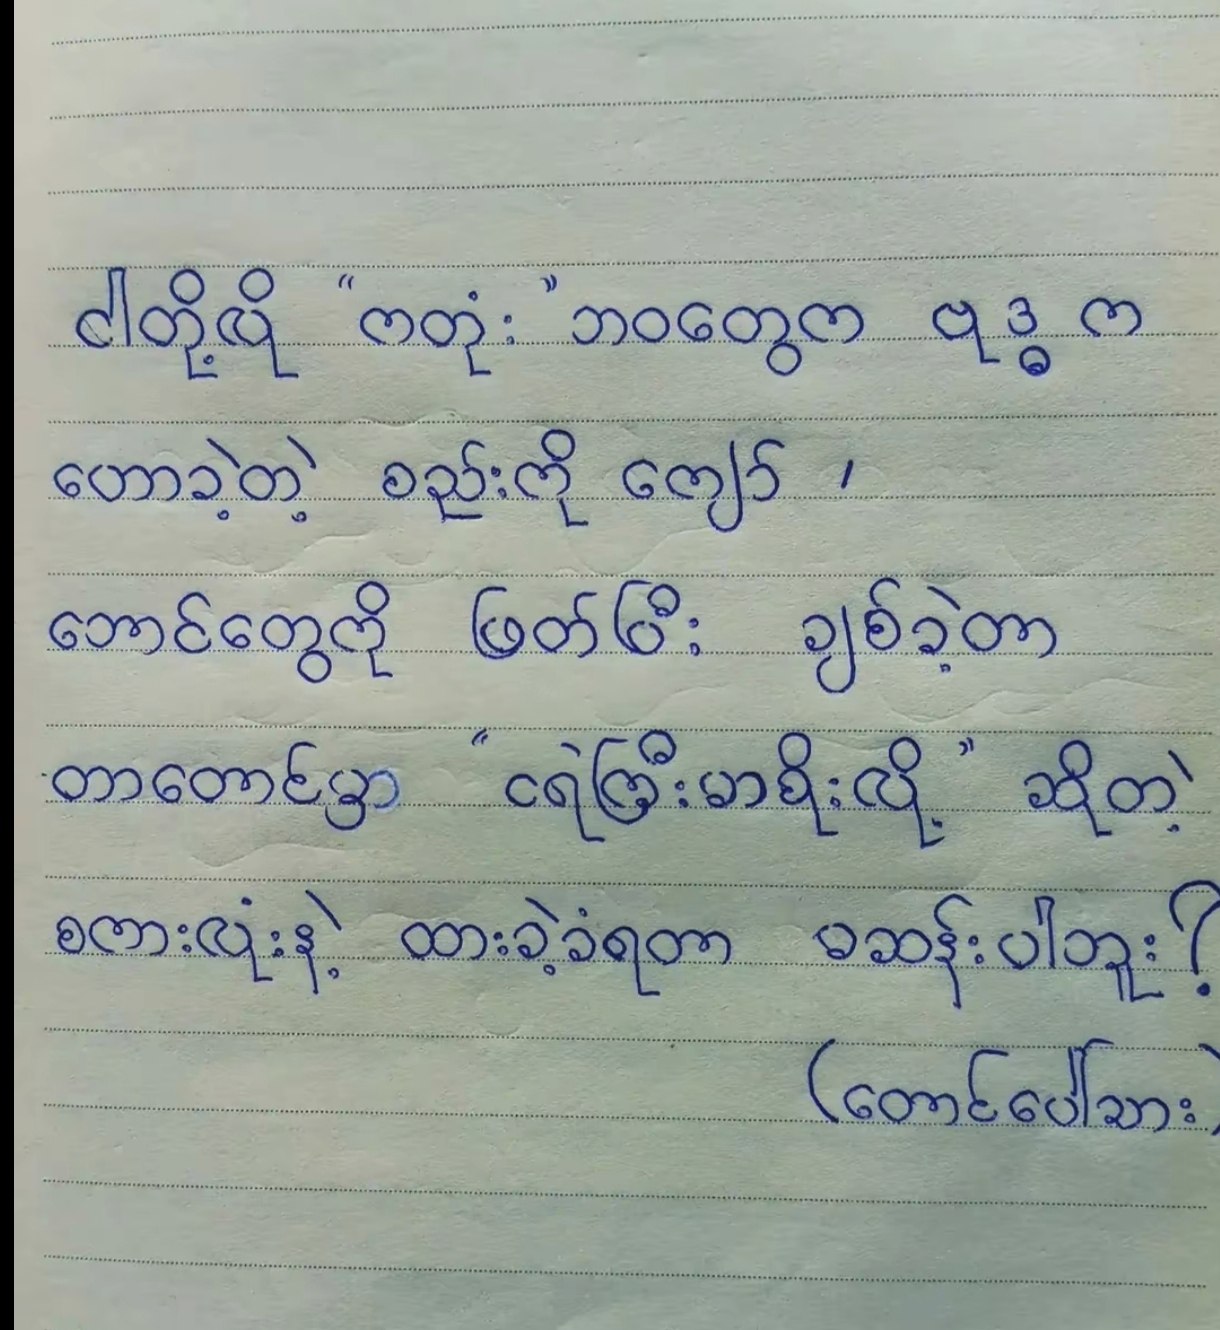 ငါတို့လို "ကတုံး" ဘဝတွေက ဗုဒ္ဓ က
ဟောခဲ့တဲ့ စည်းကို ကျော် ၊
ဘောင်တွေကို ဖြတ်ပြီး ချစ်ခဲ့တာ
တာတောင်မှာ "ငရဲကြီးမာစိုးလို့" ဆိုတဲ့
စကားလုံးနဲ့ ထားခဲ့ခံရတာ မဆန်းပါဘူး?
(တောင်ပေါ်သား)